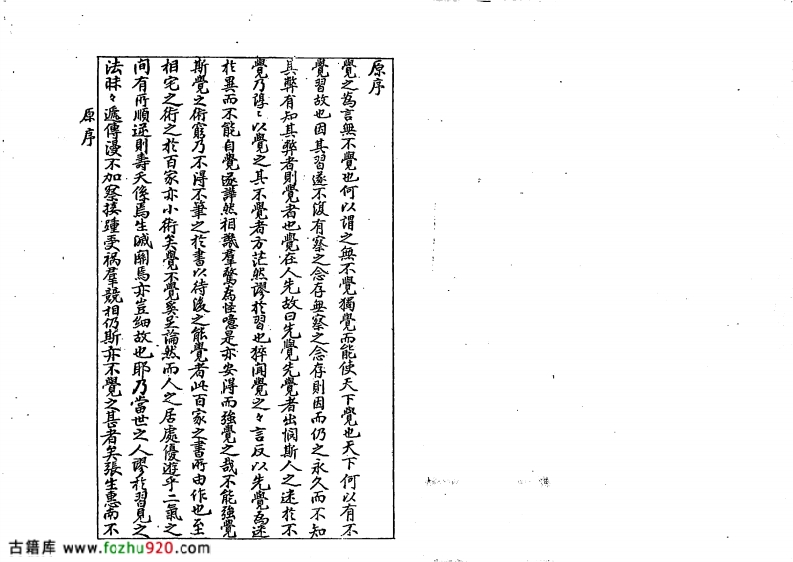 原序
覺之爲言無不覺也何以謂之無不覺獨覺而能使天下覺也天下何以有不
覺習故也因其習遂不復有察之念存無察之念存則因而仍之永久而不知
其弊有知其弊者則覺者也覺在人先故曰先覺先覺者出憫斯人之迷於不
覺乃諄〻以覺之其不覺者方茫然謬於習也猝聞覺之〻言反以先覺爲迷
於異而不能自覺遂譁然相譏羣驚爲怪噫是亦安得而強覺之哉不能強覺
斯覺之術窮乃不得不筆之於書以待後之能覺者此百家之書所由作也至
相宅之術之於百家亦小術矣覺不覺奚足論然而人之居處優遊乎二氣之
間有所順逆則壽夭係焉生滅關焉亦豈細故也耶乃當世之人謬於習見之
法昧〻遞傳漫不加察接踵受禍羣競相仍斯亦不覺之甚者矣張生惠南不
原序
古籍库 www.fozhu920.com